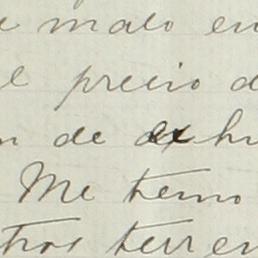 malo en
el precio d
n de ex hu
Me temo
tros terren